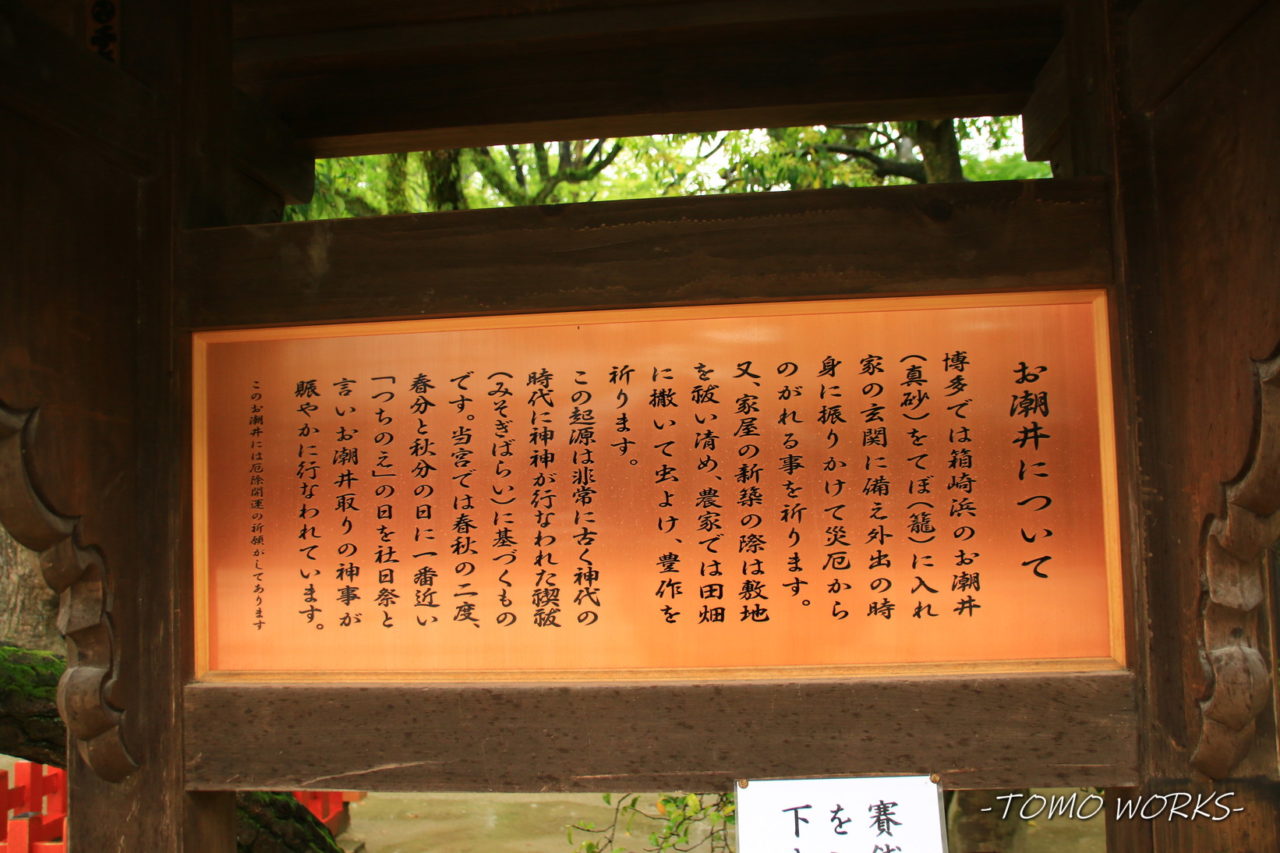 お潮井について
博多では箱崎浜のお潮井
(真砂)をてぼ(籠)に入れ
家の玄関に備え外出の時
身に振りかけて災厄から
のがれる事を祈ります。
又、家屋の新築の際は敷地
を祓い清め、農家では田畑
に撒いて虫よけ、豊作を
祈ります。
この起源は非常に古く神代の
時代に神神が行なわれた禊祓
(みそぎばらい)に基づくもの
です。当宮では春秋の二度、
春分と秋分の日に一番近い
「つちのえ」の日を社日祭と
言いお潮井取りの神事が
賑やかに行なわれています。
このお潮井には厄除開運の祈願がしてあります
賽
を
下
-TOMO WORKS-